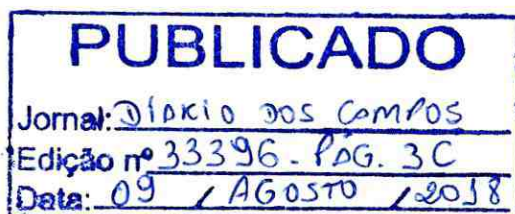 PUBLICADO
Jornal: DIÁRIO DOS CAMPOS
Edição nº 33396 - PÁG. 3C
Data: 09 / AGOSTO / 2018